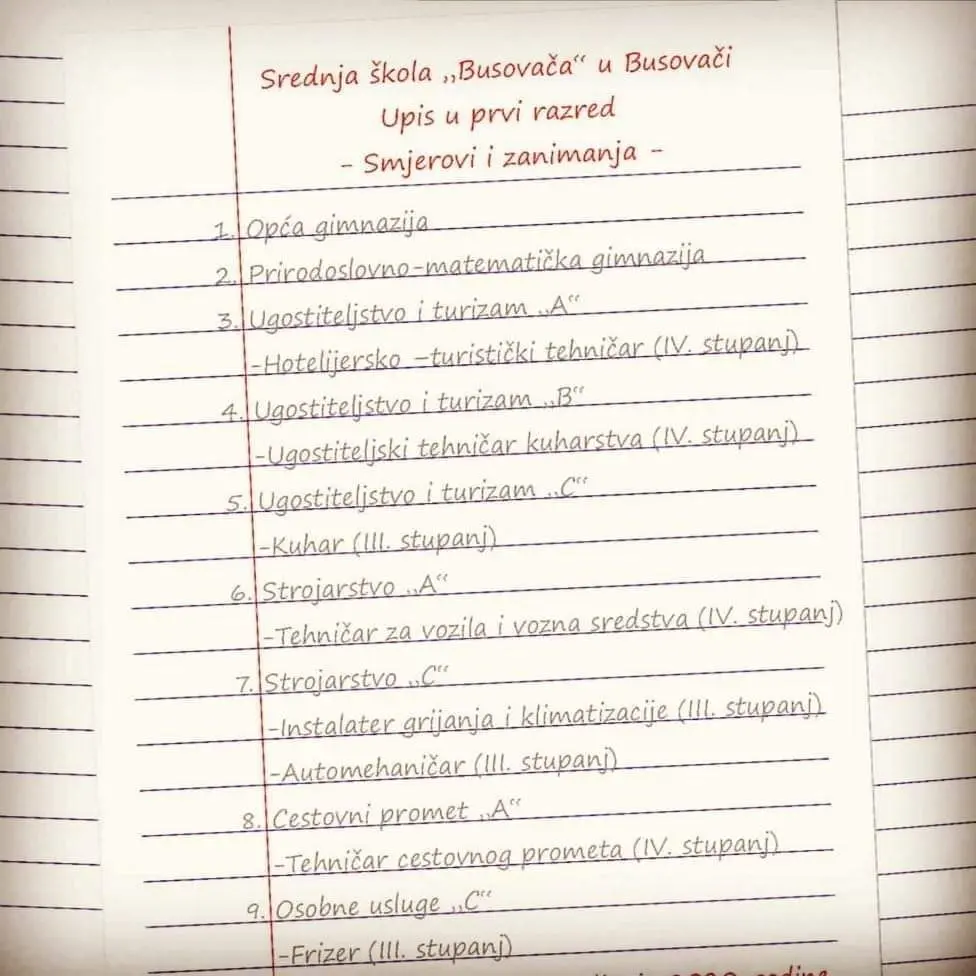 Srednja škola „Busovača“ u Busovači
Upis u prvi razred
- Smjerovi i zanimanja -
1. Opća gimnazija
2. Prirodoslovno-matematička gimnazija
3. Ugostiteljstvo i turizam „A“
-Hotelijersko –turistički tehničar (IV. stupanj)
4. Ugostiteljstvo i turizam „B“
-Ugostiteljski tehničar kuharstva (IV. stupanj)
5. Ugostiteljstvo i turizam „C“
-Kuhar (III. stupanj)
6. Strojarstvo „A“
-Tehničar za vozila i vozna sredstva (IV. stupanj)
7. Strojarstvo „C“
-Instalater grijanja i klimatizacije (III. stupanj)
-Automehaničar (III. stupanj)
8. Cestovni promet „A“
-Tehničar cestovnog prometa (IV. stupanj)
9. Osobne usluge „C“
-Frizer (III. stupanj)